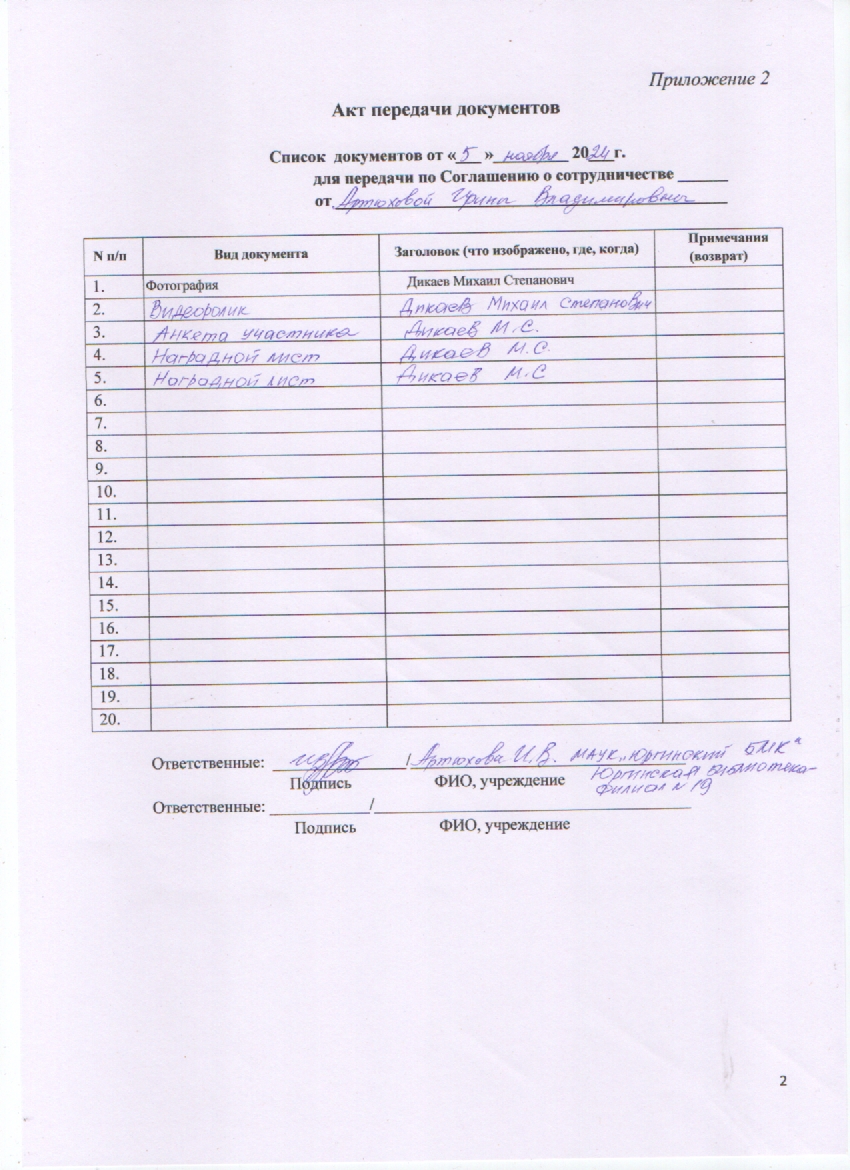 Приложение 2
Акт передачи документов
Список документов от «5» ноября 2024 г.
для передачи по Соглашению о сотрудничестве ______
от Артюховой Ирины Владимировны
N п/п Вид документа Заголовок (что изображено, где, когда) Примечания (возврат)
1. Фотография Дикаев Михаил Степанович
2. Видеоролик Дикаев Михаил Степанович
3. Анкета участника Дикаев М.С.
4. Наградной лист Дикаев М.С.
5. Наградной лист Дикаев М.С
6.
7.
8.
9.
10.
11.
12.
13.
14.
15.
16.
17.
18.
19.
20.
Ответственные: / Артюхова И.В. МАУК „Юргинский БМК“
Подпись ФИО, учреждение Юргинская библиотека-
филиал N 19
Ответственные: ____________/____________
Подпись ФИО, учреждение
2